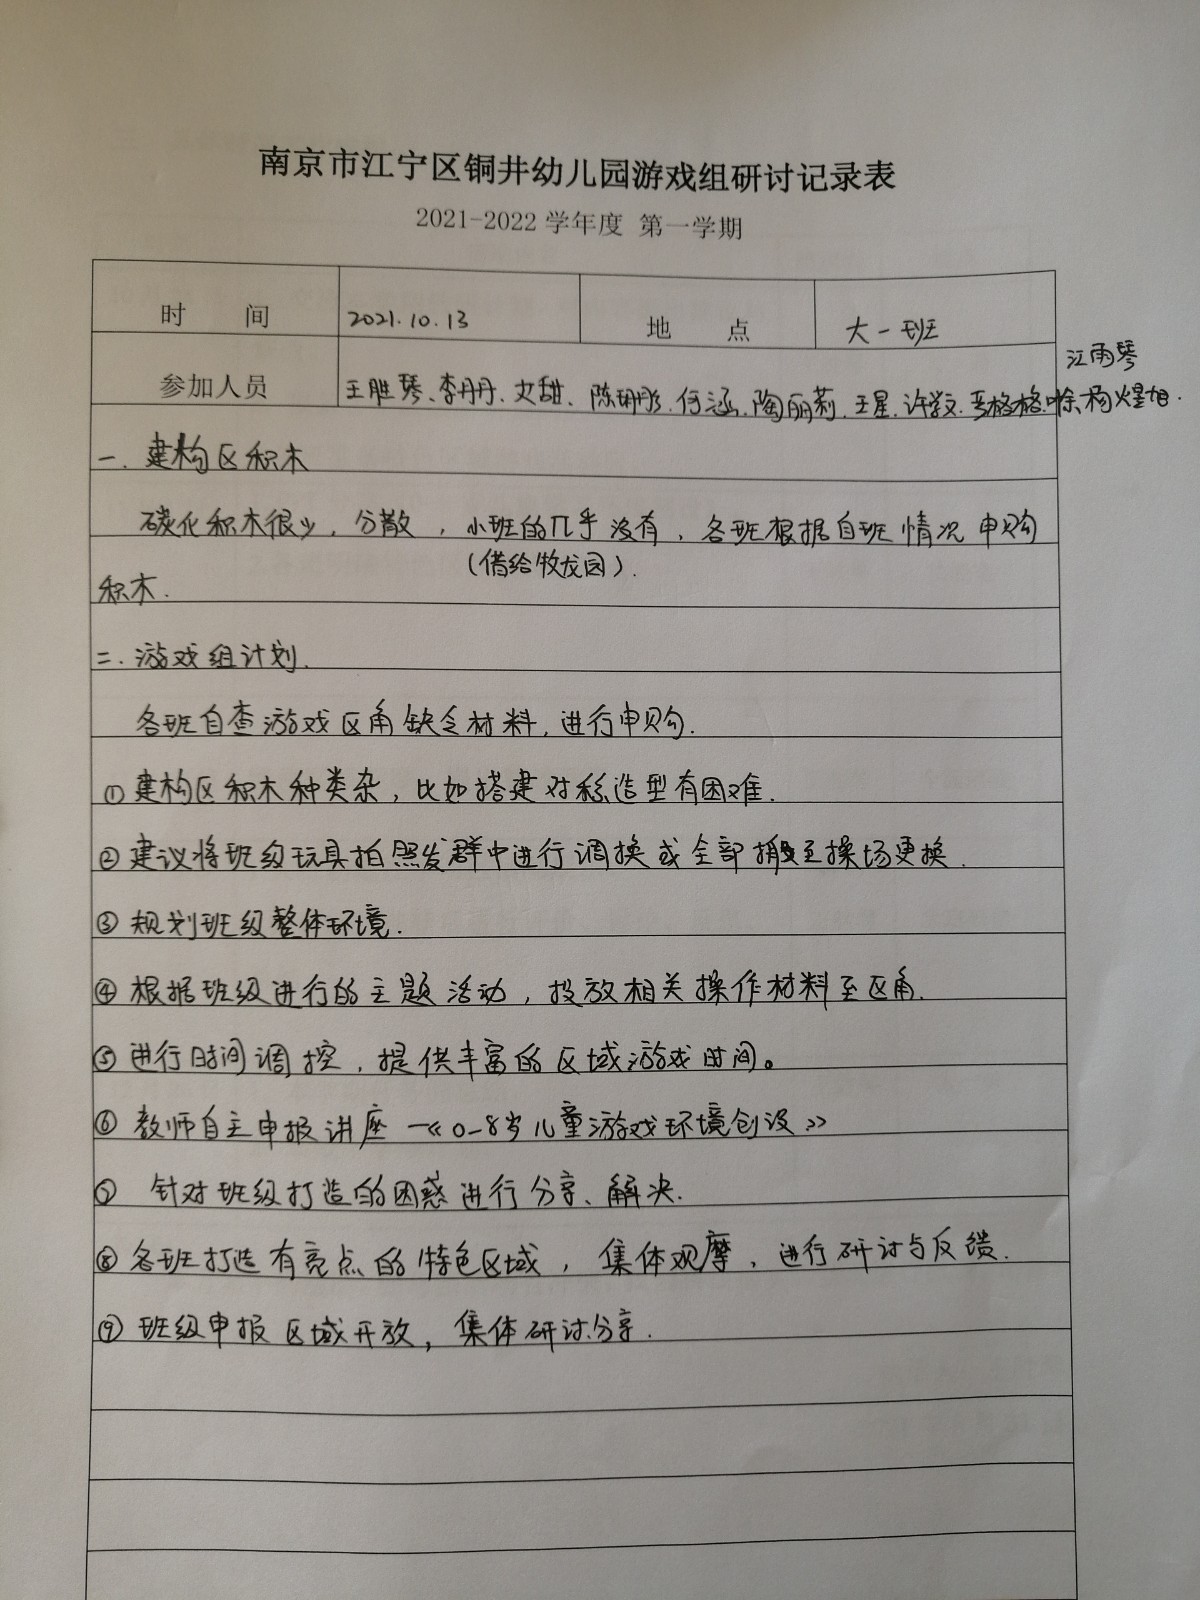 南京市江宁区铜井幼儿园游戏组研讨记录表
2021-2022 学年度 第一学期
时 间 2021.10.13 地 点 大一班
江雨琴
参加人员 王胜琴、李丹丹、史甜、陈珊珊、何涵、陶丽莉、王星、许
一. 建构区积木
碳化积木很少，分散，小班的几乎没有，各班根据自班情况申购
(借给牧龙园).
积木.
二. 游戏组计划.
各班自查游戏区角缺乏材料,进行申购.
① 建构区积木种类杂，比如搭建对称造型有困难.
② 建议将班级玩具拍照发群中进行调换或全部搬至操场更换.
③ 规划班级整体环境.
④ 根据班级进行的主题活动，投放相关操作材料至区角.
⑤ 进行时间调控，提供丰富的区域游戏时间。
⑥ 教师自主申报讲座—《0-8岁儿童游戏环境创设》
⑦ 针对班级打造的困惑进行分享、解决.
⑧ 各班打造有亮点的特色区域，集体观摩，进行研讨与反馈.
⑨ 班级申报区域开放，集体研讨分享.